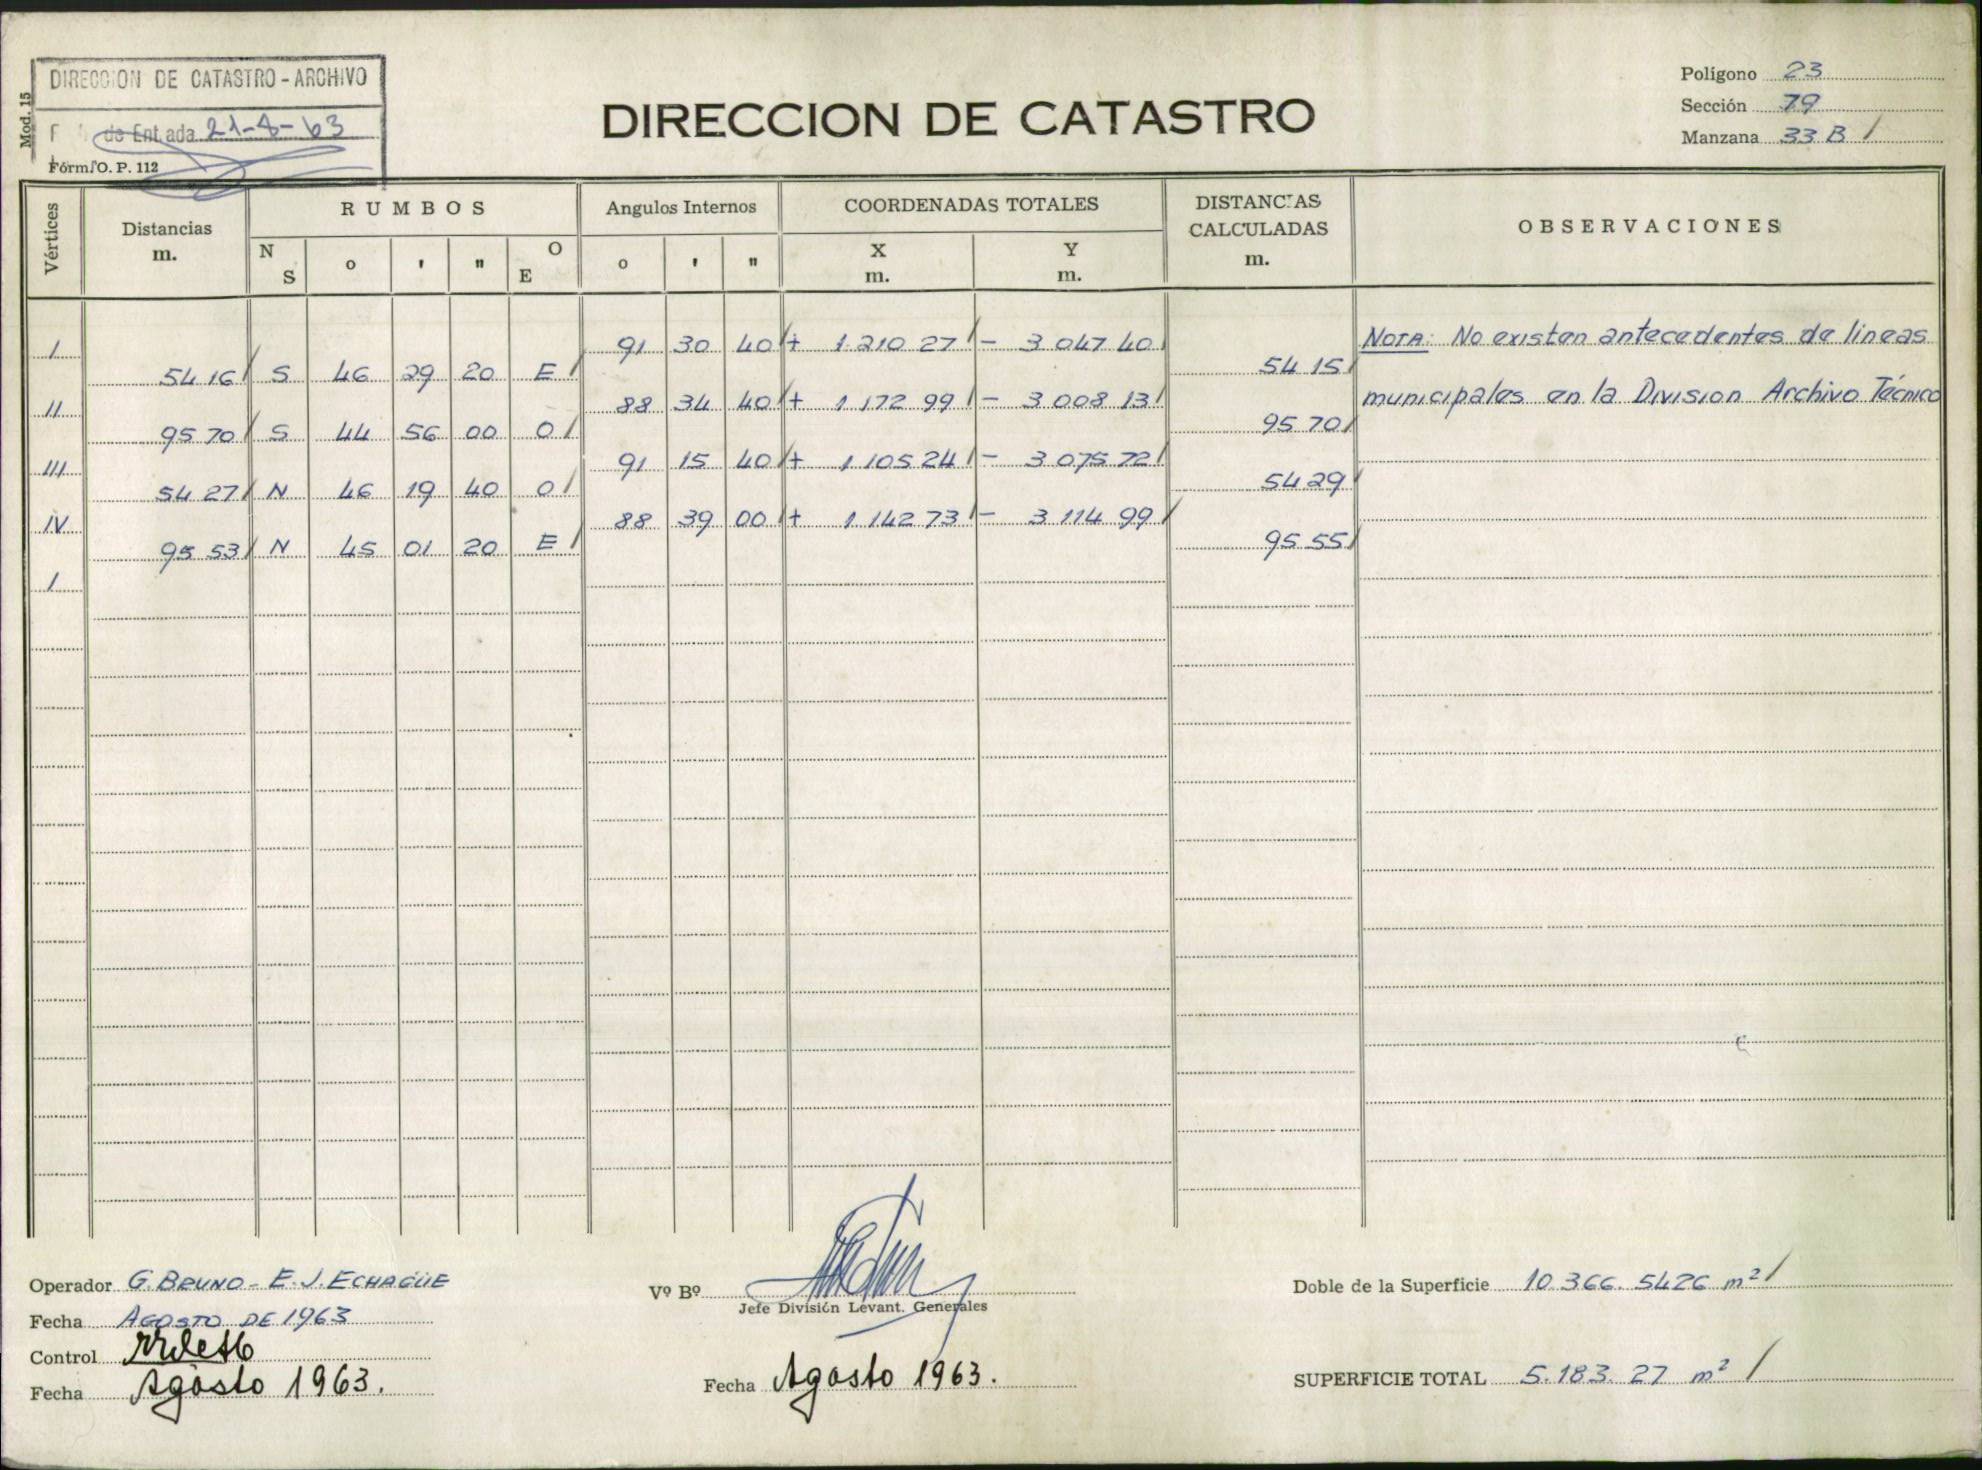 DIRECCION DE CATASTRO - ARCHIVO
de Entrada 21-8-63
Mod. 15
Form. O. P. 112
DIRECCION DE CATASTRO
Polígono 23
Sección 79
Manzana 33 B /
Vértices
Distancias
m.
RUMBOS
N
S
o
'
"
O
E
Angulos Internos
o
'
"
COORDENADAS TOTALES
X
m.
Y
m.
DISTANCIAS
CALCULADAS
m.
OBSERVACIONES
I 91 30 40 / + 1.210 27 / - 3.047 40 / NOTA: No existen antecedentes de lineas
54 16 / S 46 29 20 E / 54 15 /
II 88 34 40 / + 1.172 99 / - 3.008 13 / municipales en la Division Archivo Técnico
95 70 / S 44 56 00 O / 95 70 /
III 91 15 40 / + 1.105 24 / - 3.075 72 /
54 27 / N 46 19 40 O / 54 29 /
IV 88 39 00 / + 1.142 73 / - 3.114 99 /
95 53 / N 45 01 20 E / 95 55 /
I
Operador G. BRUNO - E. J. ECHAGÜE
Fecha AGOSTO DE 1963
Control
Fecha Agosto 1963.
Vº Bº
Jefe División Levant. Generales
Fecha Agosto 1963.
Doble de la Superficie 10.366. 5426 m² /
SUPERFICIE TOTAL 5.183. 27 m² /